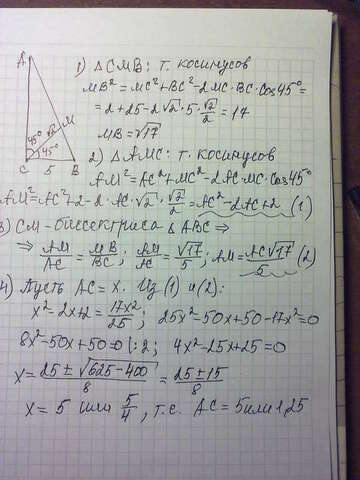 A
45°
√2
M
45°
C 5 B
1) △CMB: т. косинусов
MB² = MC² + BC² - 2MC · BC · Cos45° =
= 2 + 25 - 2√2 · 5 · √2/2 = 17
MB = √17
2) △AMC: т. косинусов
AM² = AC² + MC² - 2AC · MC · Cos45°
AM² = AC² + 2 - 2 · AC · √2 · √2/2 = AC² - 2AC + 2 (1)
3) CM - биссектриса △ABC ⇒
⇒ AM/AC = MB/BC; AM/AC = √17/5; AM = AC√17/5 (2)
4) Пусть AC = x. Из (1) и (2):
x² - 2x + 2 = 17x²/25; 25x² - 50x + 50 - 17x² = 0
8x² - 50x + 50 = 0 |: 2; 4x² - 25x + 25 = 0
x = (25 ± √(625 - 400))/8 = (25 ± 15)/8
x = 5 или 5/4, т.е. AC = 5 или 1,25